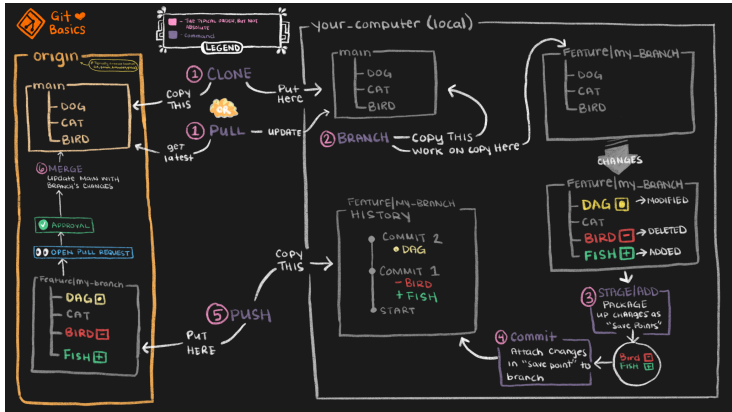 Git ❤
Basics
- The typical order, but not
absolute
- Command
LEGEND
origin
main
DOG
CAT
BIRD
① CLONE
COPY
THIS
Put
Here
OR
① PULL
get
latest
UPDATE
⑥ MERGE
Update main with
Branch's changes
APPROVAL
OPEN PULL REQUEST
Feature/my-branch
DAG
CAT
BIRD
FISH
⑤ PUSH
COPY
THIS
PUT
HERE
your_computer (local)
main
DOG
CAT
BIRD
② BRANCH
COPY THIS
WORK ON COPY Here
Feature/my_BRANCH
DOG
CAT
BIRD
CHANGES
FEATURE/my_BRANCH
DAG → MODIFIED
CAT
BIRD → DELETED
FISH → ADDED
③ STAGE/ADD
PACKAGE
UP CHANGES AS
"SAVE POINTS"
Bird
FISH
④ Commit
Attach changes
in "save point" to
branch
FEATURE/my-BRANCH
HISTORY
COMMIT 2
DAG
COMMIT 1
- BIRD
+ FISH
START